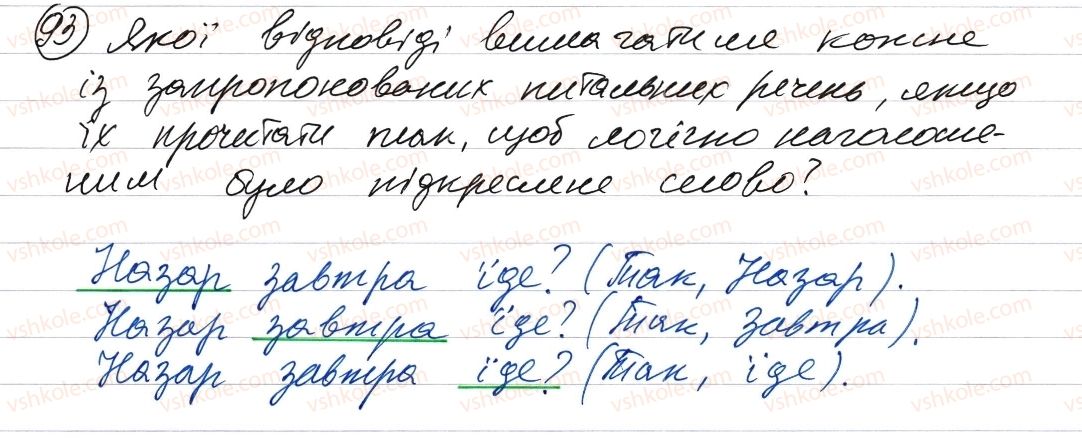 93 Якої відповіді вимагатиме кожне
із запропонованих питальних речень, якщо
їх прочитати так, щоб логічно наголоше-
ним було підкреслене слово?
Назар завтра їде? (Так, Назар).
Назар завтра їде? (Так, завтра).
Назар завтра їде? (Так, їде).